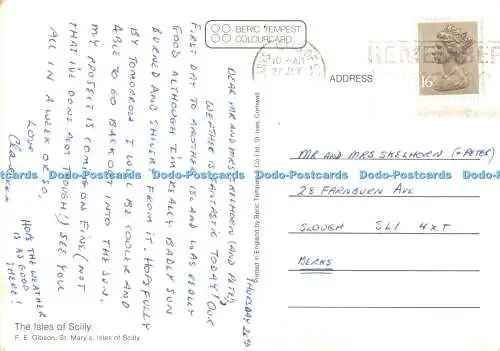 BERIC TEMPEST
COLOURCARD
10 - AM
27 JLY
REMEMBER
16P
ADDRESS
THURSDAY 26th
DEAR MR AND MRS SKELHORN (AND PETER)
WEATHER IS FANTASTIC TODAY! OUR
FIRST DAY TO ANOTHER ISLAND WAS REALLY
GOOD ALTHOUGH I'M REALLY BADLY SUN
BURNED AND SHIVER FROM IT. HOPEFULLY
BY TOMORROW I WILL BE COOLER AND
ABLE TO GO BACK OUT INTO THE SUN.
MY PROJECT IS COMING ON FINE (NOT
THAT I'VE DONE ALOT THOUGH!) SEE YOU
ALL IN A WEEK OR SO,
LOVE
HOPE THE WEATHER
IS AS GOOD
THERE!
Printed in England by Beric Tempest & Co Ltd, St. Ives, Cornwall
MR AND MRS SKELHORN (+ PETER)
28 FARNBURN AVE
SLOUGH SL1 4XT
BERKS
The Isles of Scilly
F. E. Gibson, St. Mary's, Isles of Scilly
Postcards-Data Postcards-Data Postcards-Data Postcards-Data